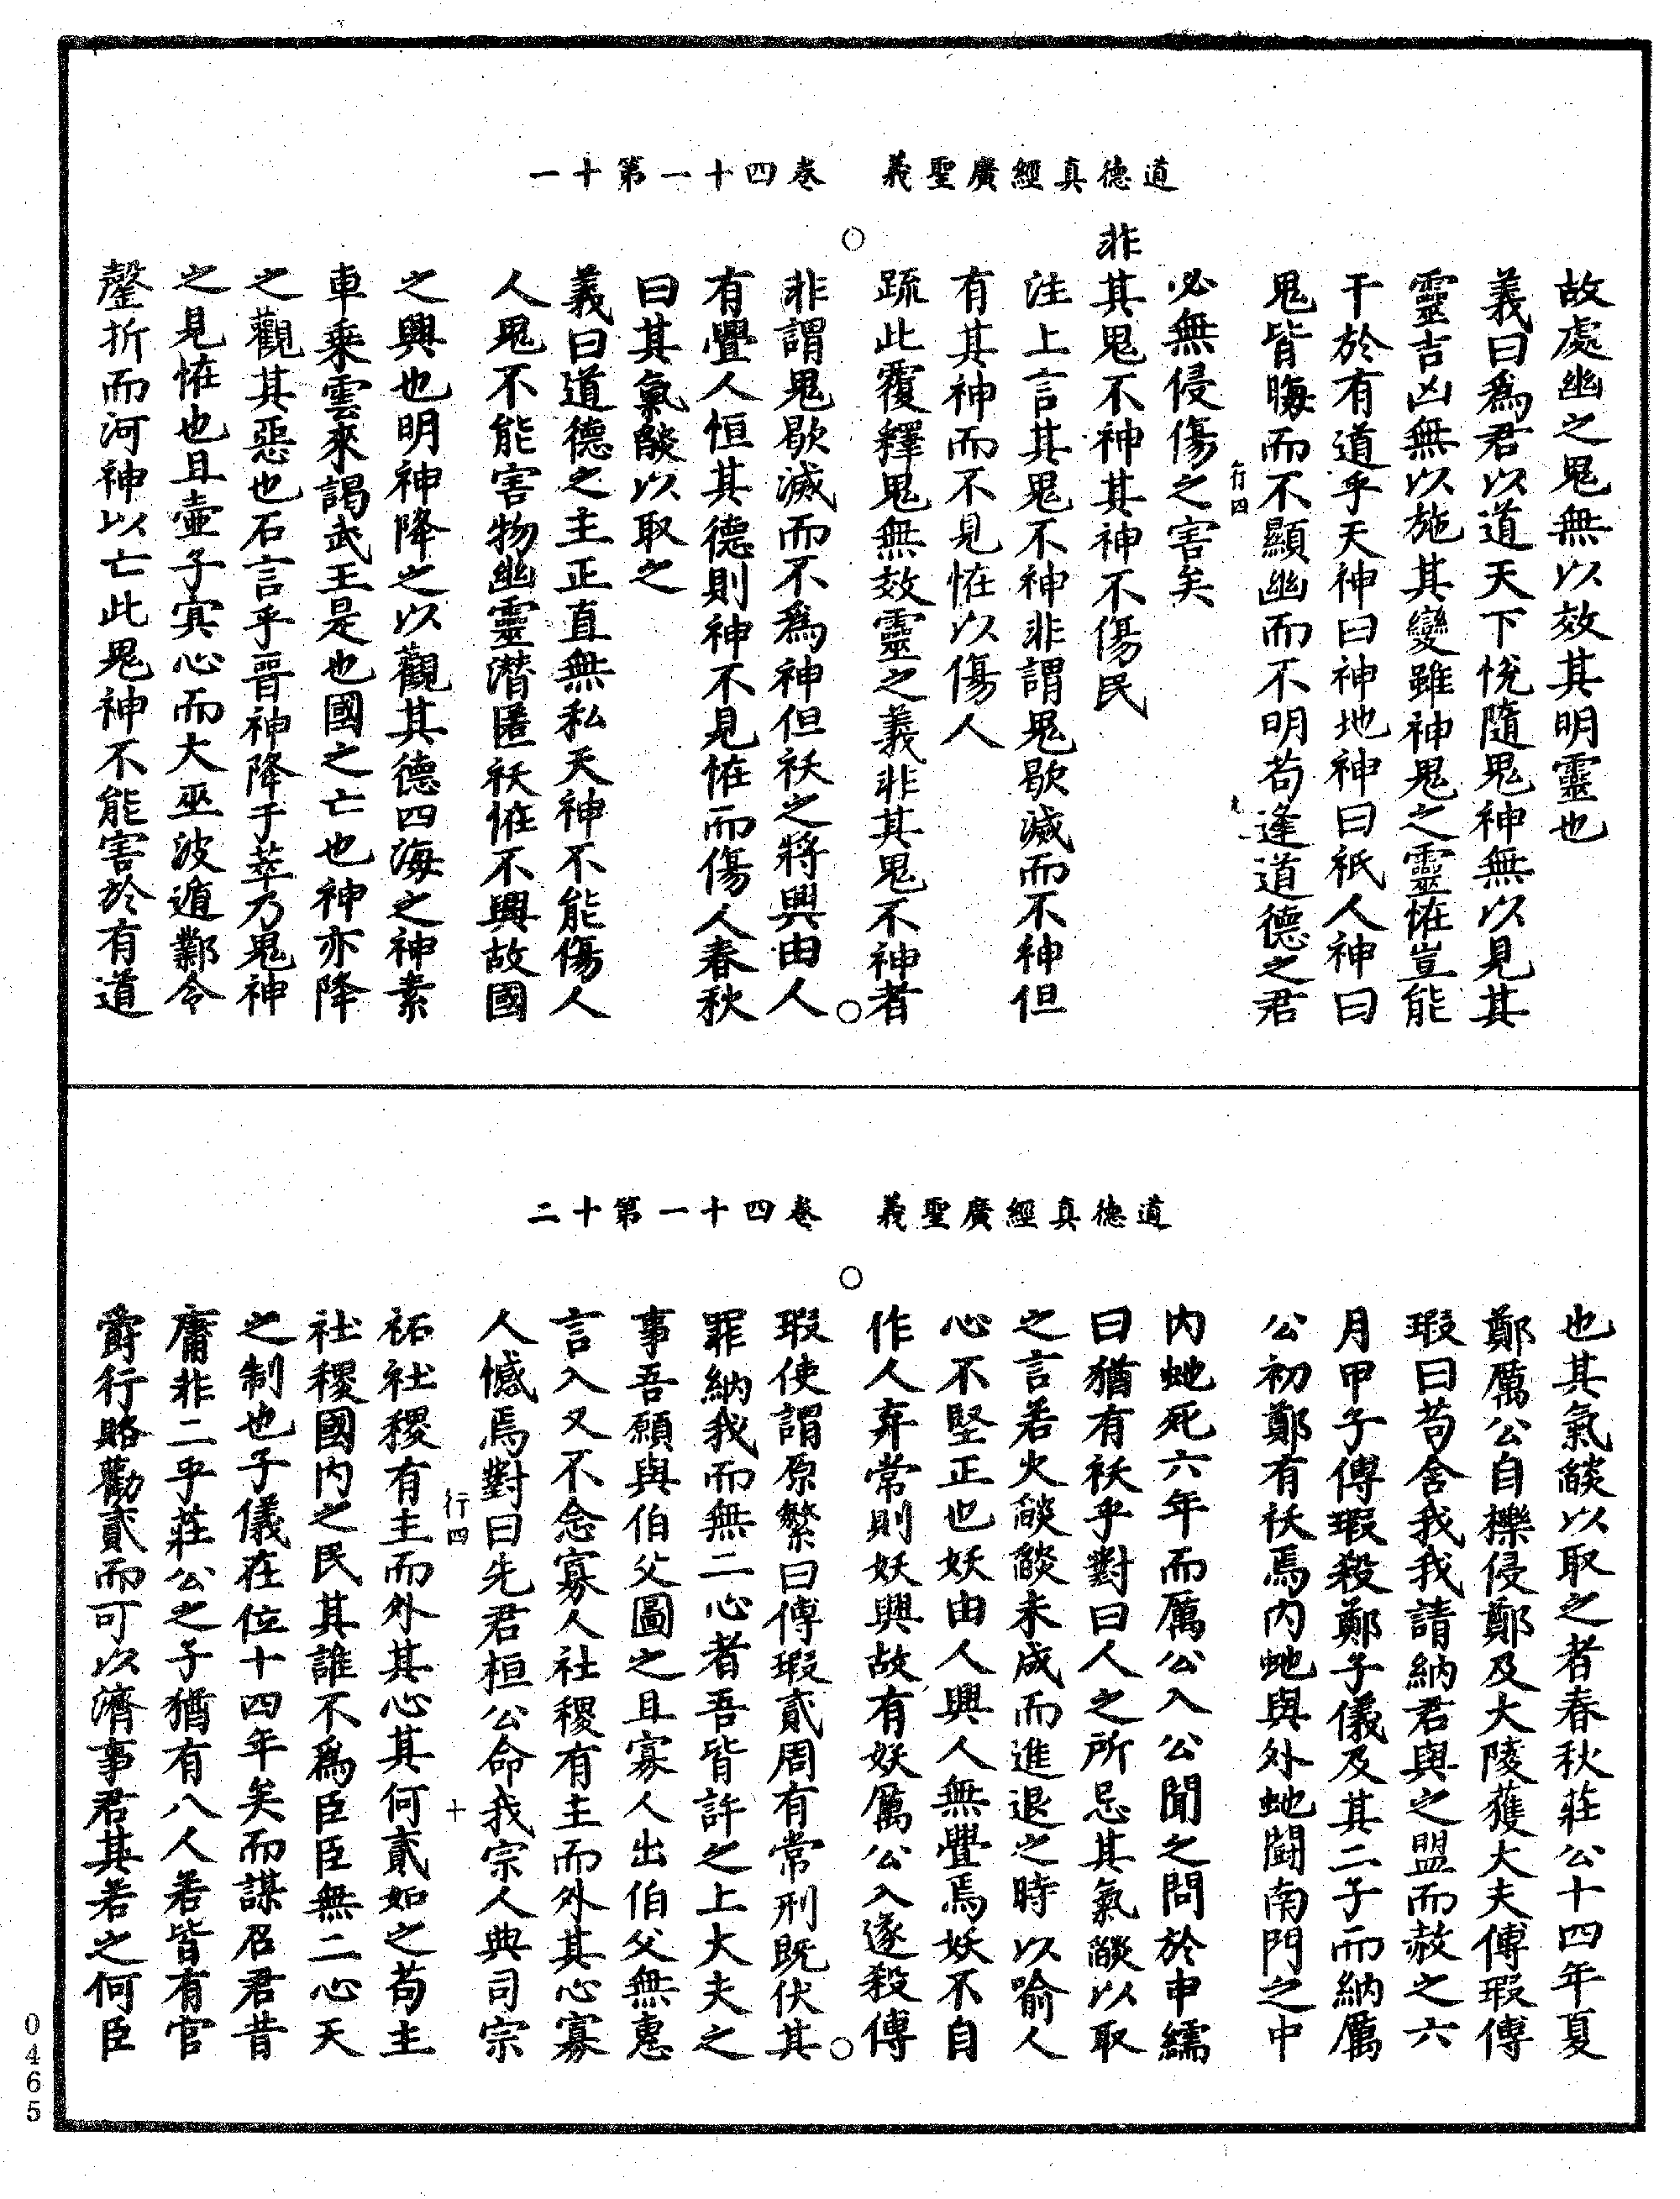 道德真經廣聖義　卷四十一第十一
故處幽之鬼無以效其明靈也
義曰爲君以道天下悅隨鬼神無以見其
靈吉凶無以施其變雖神鬼之靈恠豈能
干於有道乎天神曰神地神曰祇人神曰
鬼皆晦而不顯幽而不明苟逢道德之君
行四
必無侵傷之害矣
非其鬼不神其神不傷民
注上言其鬼不神非謂鬼歇滅而不神但
有其神而不見恠以傷人
疏此覆釋鬼無效靈之義非其鬼不神者
非謂鬼歇滅而不爲神但祅之將興由人
有舋人恒其德則神不見恠而傷人春秋
曰其氣燄以取之
義曰道德之主正直無私天神不能傷人
人鬼不能害物幽靈潛匿祅恠不興故國
之興也明神降之以觀其德四海之神素
車乘雲來謁武王是也國之亡也神亦降
之觀其惡也石言乎晉神降于莘乃鬼神
之見恠也且壺子㝠心而大巫波遁鄴令
磬折而河神以亡此鬼神不能害於有道
道德真經廣聖義　卷四十一第十二
也其氣燄以取之者春秋莊公十四年夏
鄭厲公自櫟侵鄭及大陵獲大夫傅瑕傅
瑕曰苟舍我我請納君與之盟而赦之六
月甲子傅瑕殺鄭子儀及其二子而納厲
公初鄭有祅焉內虵與外虵鬭南門之中
內虵死六年而厲公入公聞之問於申繻
曰猶有祅乎對曰人之所忌其氣燄以取
之言若火燄燄未成而進退之時以喻人
心不堅正也妖由人興人無舋焉妖不自
作人弃常則妖興故有妖厲公入遂殺傅
瑕使謂原繁曰傅瑕貳周有常刑既伏其
罪納我而無二心者吾皆許之上大夫之
事吾願與伯父圖之且寡人出伯父無裏
言入又不念寡人社稷有主而外其心寡
人憾焉對曰先君桓公命我宗人典司宗
行四
十
祏社稷有主而外其心其何貳如之苟主
社稷國內之民其誰不爲臣臣無二心天
之制也子儀在位十四年矣而謀召君昔
庸非二乎莊公之子猶有八人若皆有官
爵行賂勸貳而可以濟事君其若之何臣
0465